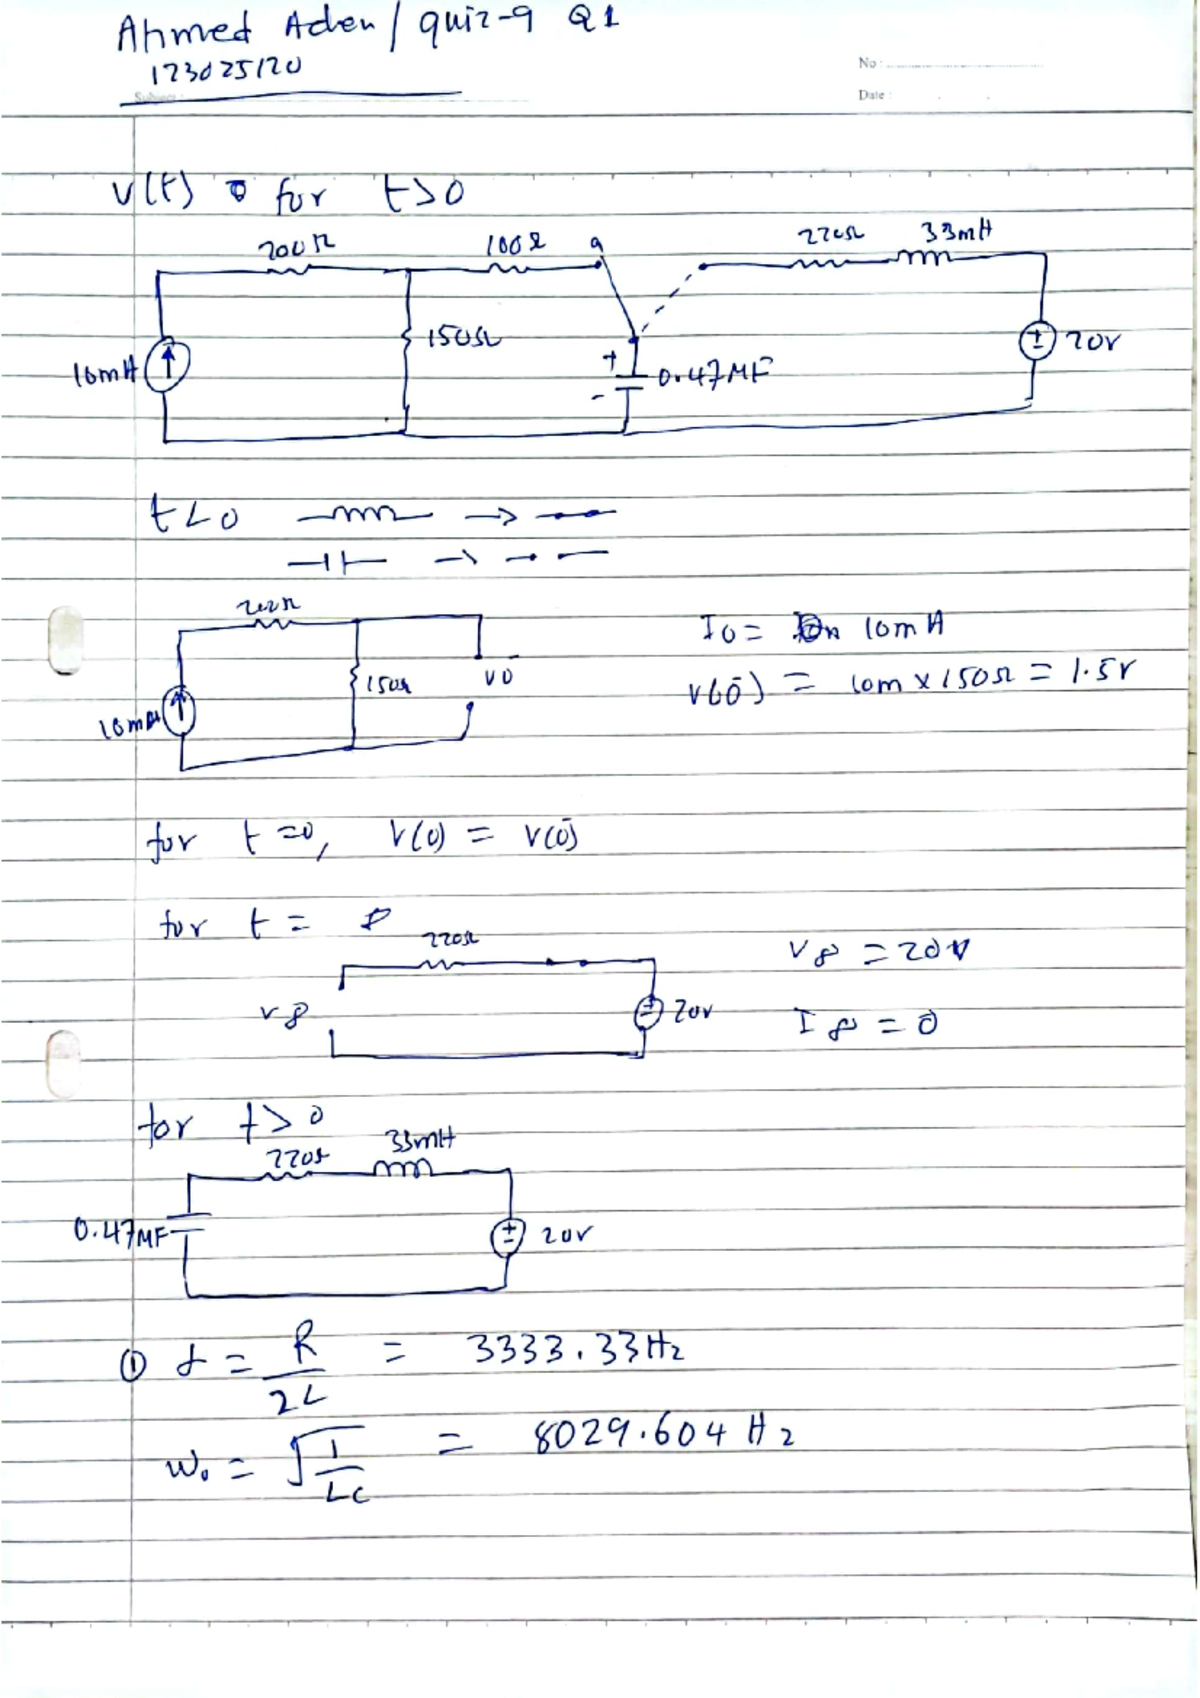 Ahmed Aden / quiz-9 Q1
123025120
Subject:
No:
Date:
v(t) for t>0
200Ω 100Ω a 220Ω 33mH
150Ω
10mA + - 0.47MF ± 20V
t<0
200Ω
I0 = 10mA
150Ω V0
10mA
v(0⁻) = 10m × 150Ω = 1.5V
for t=0, V(0) = V(0⁻)
for t = ∞
220Ω
V∞ = 20V
V∞ 20V
I∞ = 0
for t>0
220Ω 33mH
0.47MF ± 20V
① α = R/2L = 3333.33Hz
W₀ = √1/LC = 8029.604 Hz